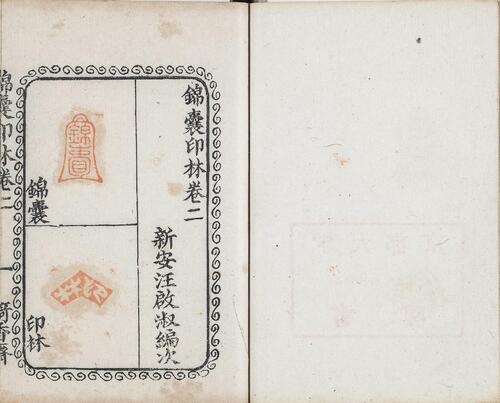 錦囊印林卷二
新安汪啟淑編次
錦囊
印林
錦囊印林卷二
一